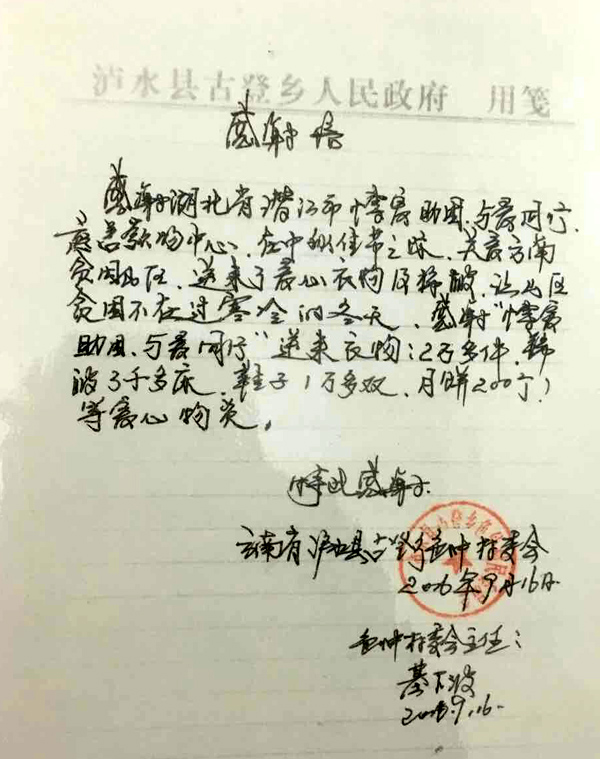 泸水县古登乡人民政府 用笺
感谢信
感谢湖北省潜江市情寄助困、与爱同行
慈善救助中心、在中秋佳节之际、关爱云南
贫困山区、送来了爱心衣物及棉被、让山区
贫困不在过寒冷的冬天、感谢"情寄
助困、与爱同行"送来衣物:2万多件、棉
被3千多床、鞋子1万多双、月饼200个、
等爱心物资。
特此感谢
云南省泸水县古登乡 村委会
2016年9月16日
村委会主任:
2016.9.16.